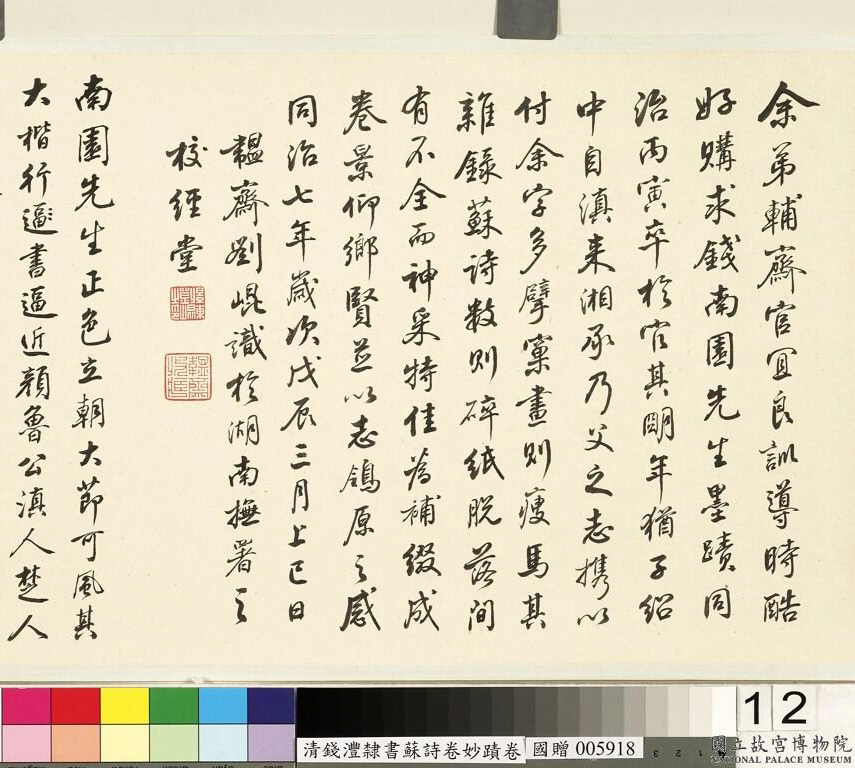 余弟輔齋官宜良訓導時酷
好購求錢南園先生墨蹟同
治丙寅卒於官其明年猶子紹
中自滇来湘承乃父之志携以
付余字多擘窠畫則瘦馬其
雜錄蘇詩数則碎紙脫落間
有不全而神采特佳為補綴成
卷景仰鄉賢並以志鴒原之感
同治七年歲次戊辰三月上巳日
韞齋劉崐識於湖南撫署之
校經堂
南園先生正色立朝大節可風其
大楷行邃書逼近顏魯公滇人楚人
12
清錢灃隸書蘇詩卷妙蹟卷 國贈 005918
國立故宮博物院
NATIONAL PALACE MUSEUM